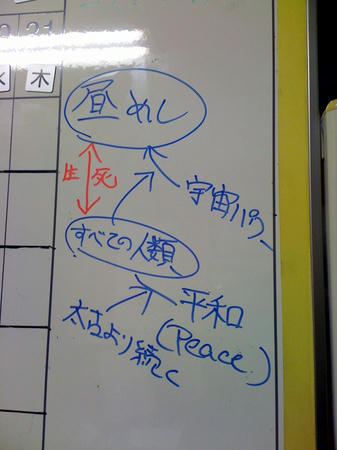 21
水 木
昼めし
生 死
宇宙パワー
すべての人類
平和
(Peace)
太古より続く